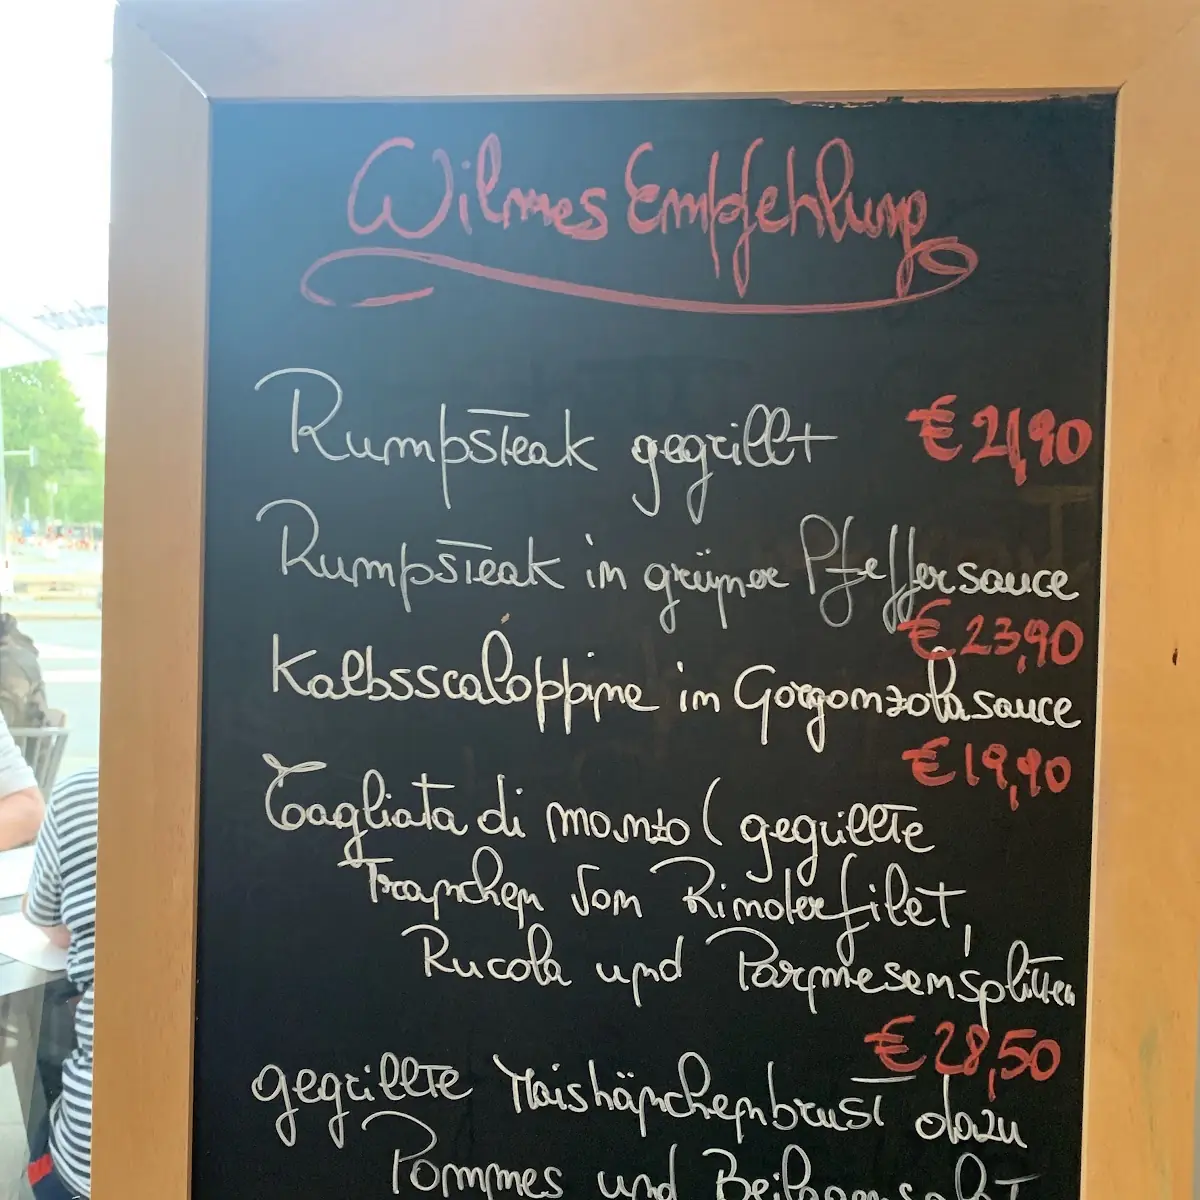 Wilmes Empfehlung
Rumpsteak gegrillt € 21,90
Rumpsteak in grüner Pfeffersauce
€ 23,90
Kalbsscaloppine in Gorgonzolasauce
€ 19,90
Tagliata di manzo (gegrillte
Tranchen vom Rinderfilet,
Rucola und Parmesansplitter
€ 28,50
gegrillte Maishänchenbrust dazu
Pommes und Beilagensalat